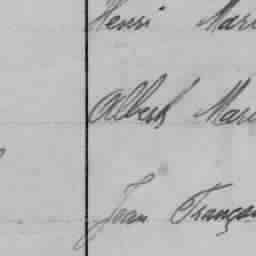 Henri Mari
Albert Mari
Jean Françoi